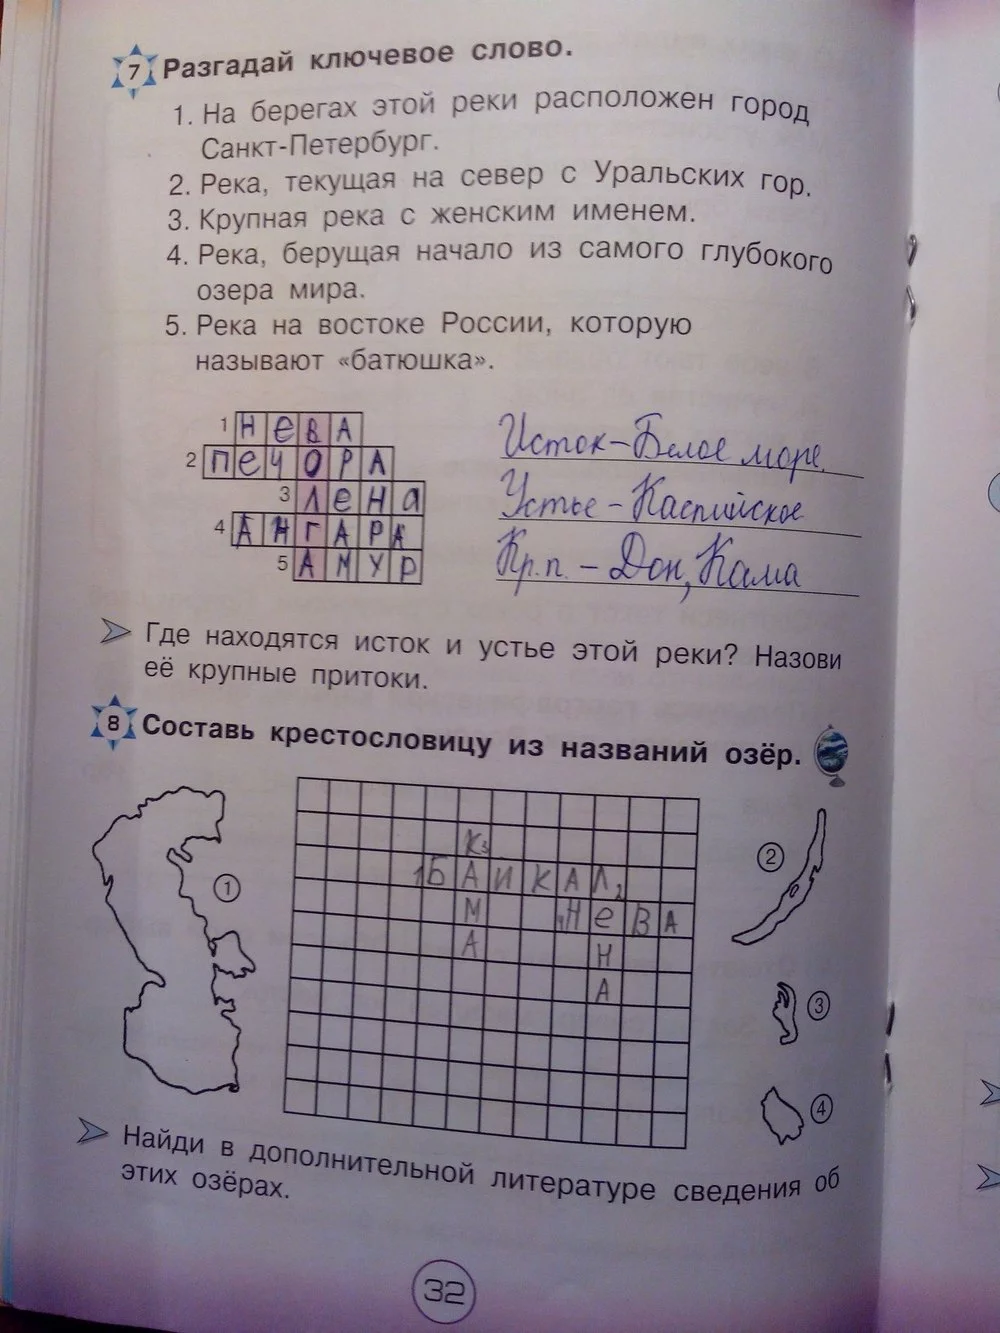 7 Разгадай ключевое слово.
1. На берегах этой реки расположен город
Санкт-Петербург.
2. Река, текущая на север с Уральских гор.
3. Крупная река с женским именем.
4. Река, берущая начало из самого глубокого
озера мира.
5. Река на востоке России, которую
называют «батюшка».
1 НеВА
2 ПеЧОРА
3 Лена
4 АНГАРА
5 АМУР
Исток – Белое море.
Устье – Каспийское
Кр.п. – Дон, Кама
Где находятся исток и устье этой реки? Назови
её крупные притоки.
8 Составь крестословицу из названий озёр.
К3
1БАЙКАЛ2
М 4НеВА
А Н
А
1
2
3
4
Найди в дополнительной литературе сведения об
этих озёрах.
32